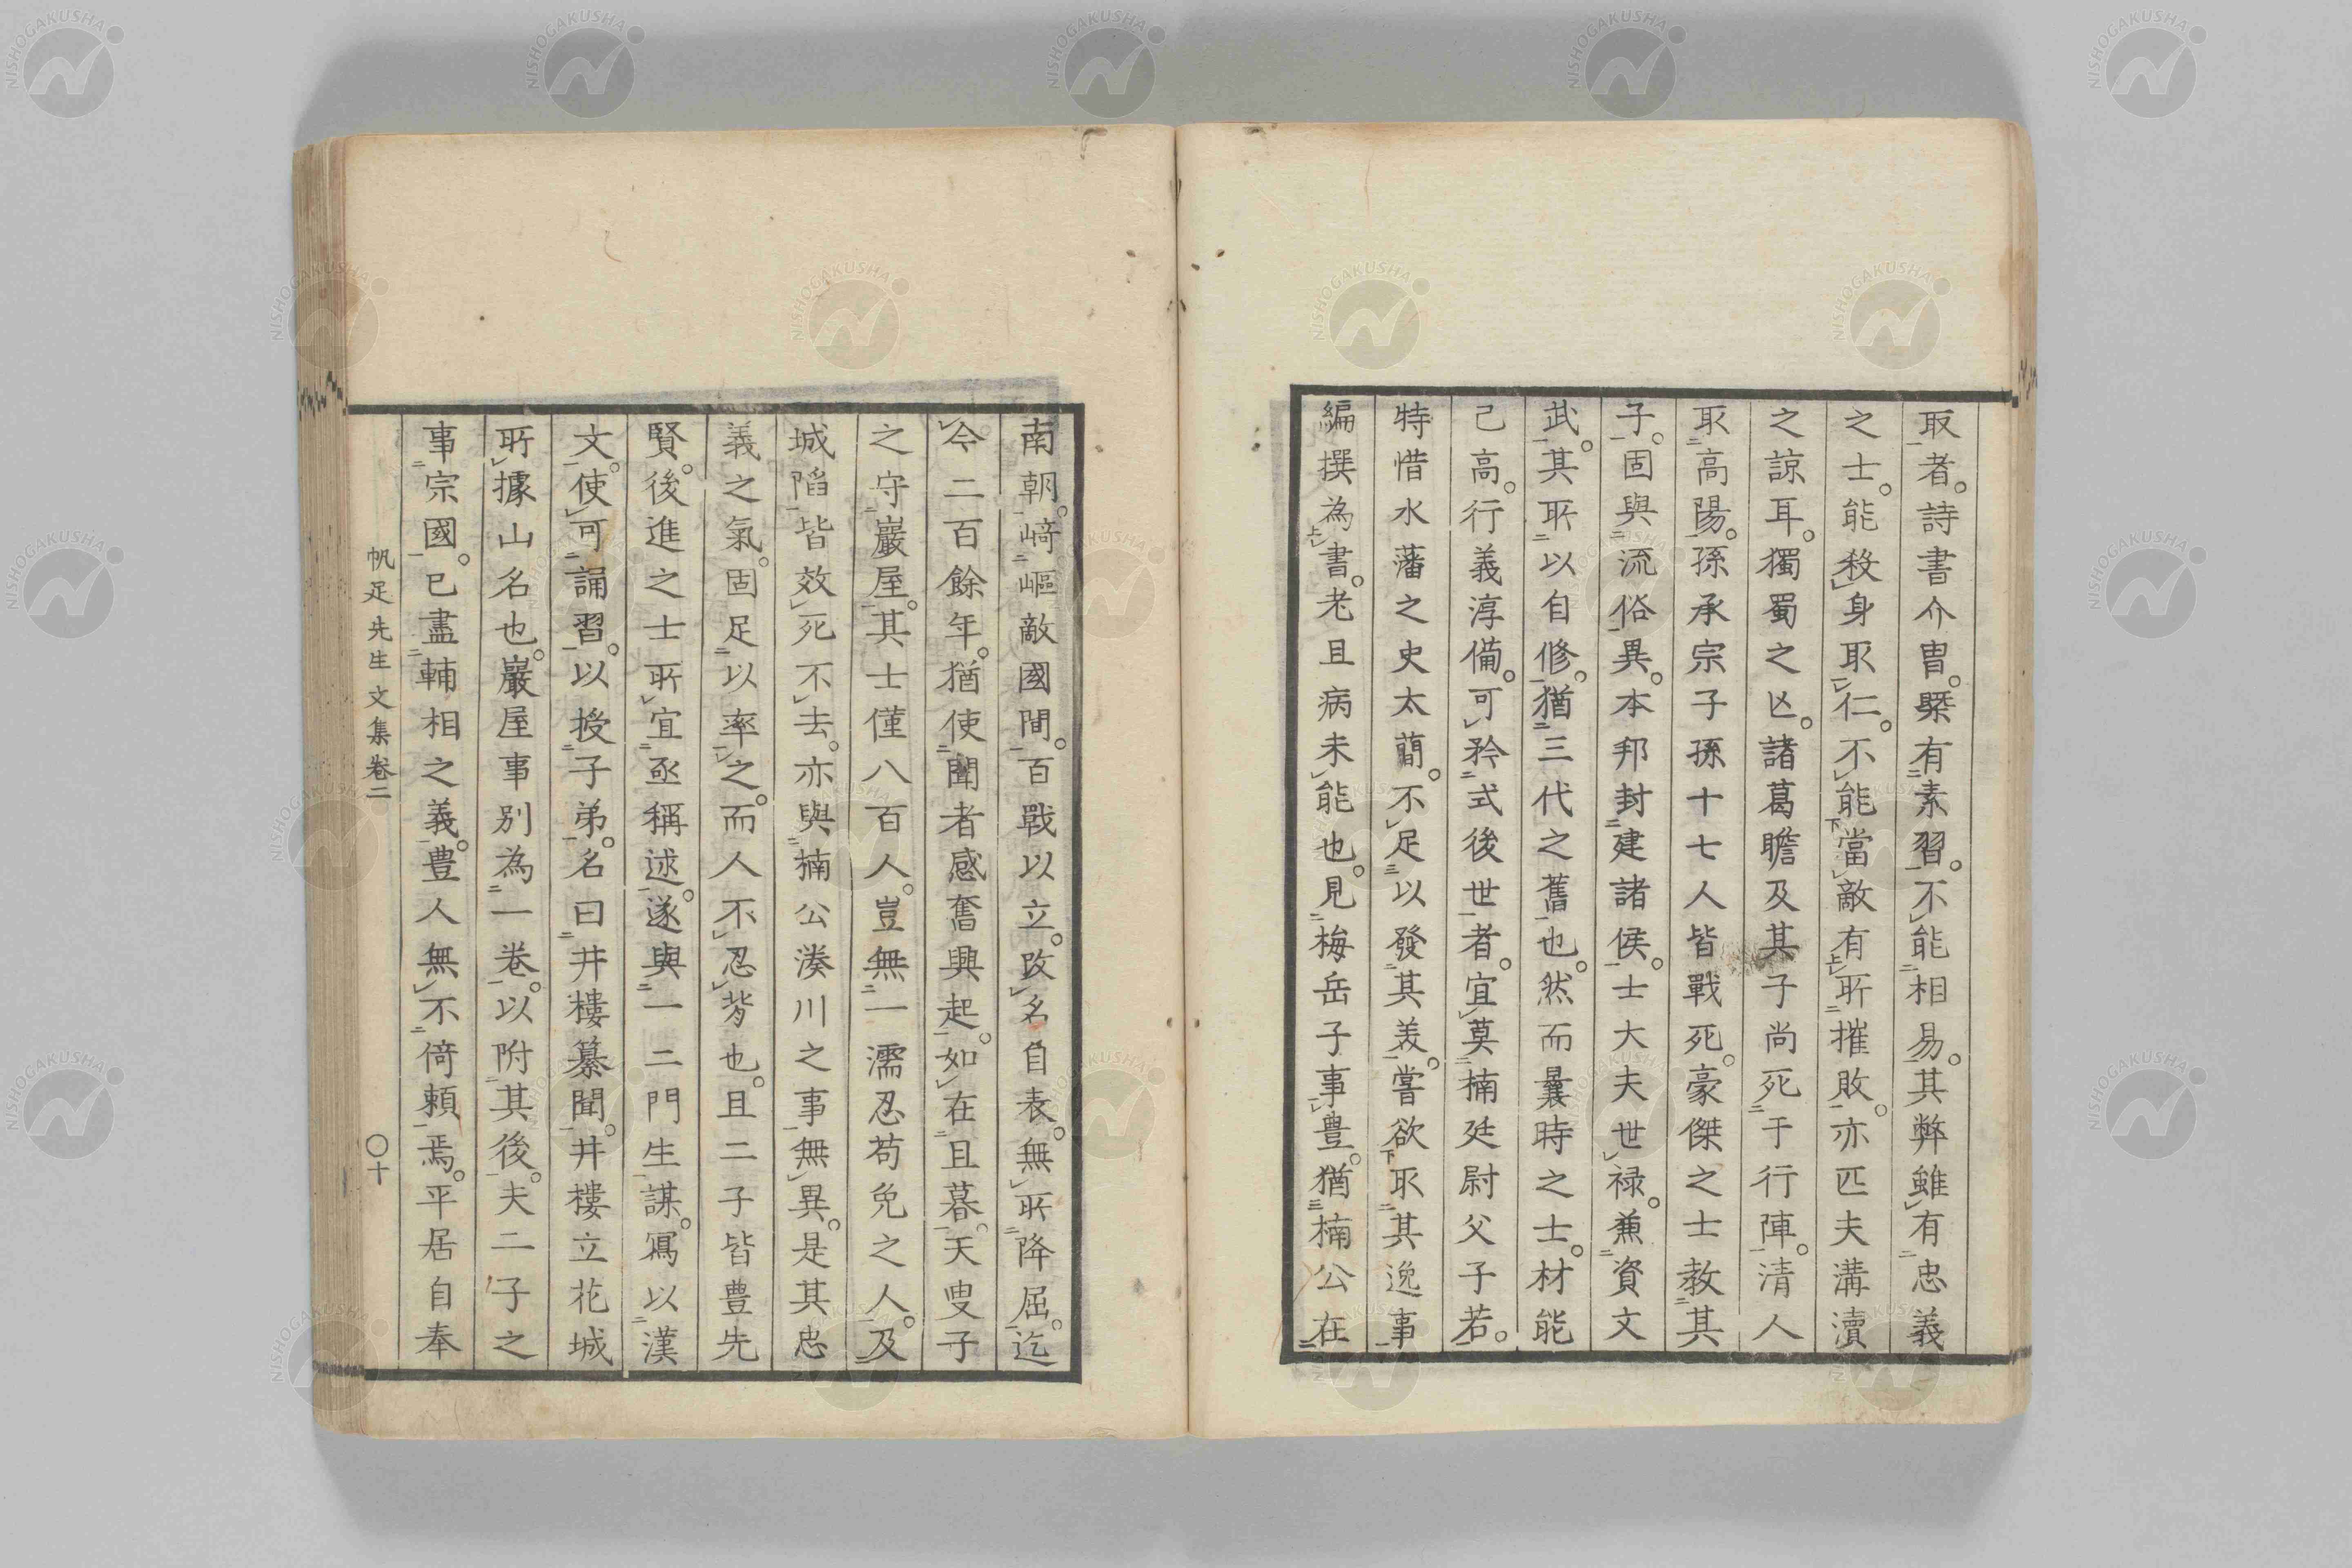 取者。詩書介冑。槩有素習。不能相易。其弊雖有忠義
之士。能殺身取仁。不能當敵有所摧敗。亦匹夫溝瀆
之諒耳。獨蜀之亡。諸葛瞻及其子尚死于行陣。清人
取高陽。孫承宗子孫十七人皆戰死。豪傑之士教其
子。固與流俗異。本邦封建諸侯。士大夫世祿。兼資文
武。其所以自修。猶三代之舊也。然而曩時之士。材能
己高。行義淳備。可矜式後世者。宜莫楠廷尉父子若。
特惜水藩之史太簡。不足以發其美。嘗欲取其逸事
編撰為書。老且病未能也。見梅岳子事豊。猶楠公在
南朝。﨑嶇敵國間。百戰以立。攻名自表。無所降屈。迄
今二百餘年。猶使聞者感奮興起。如在且暮。天叟子
之守巖屋。其士僅八百人。豈無一濡忍苟免之人。及
城陷皆效死不去。亦與楠公湊川之事無異。是其忠
義之氣。固足以率之。而人不忍背也。且二子皆豊先
賢。後進之士所宜亟稱述。遂與一二門生謀。寫以漢
文。使可誦習。以授子弟。名曰井樓纂聞。井樓立花城
所據山名也。巖屋事別為一卷。以附其後。夫二子之
事宗國。已盡輔相之義。豊人無不倚賴焉。平居自奉
帆足先生文集卷二
〇十
NISHOGAKUSHA